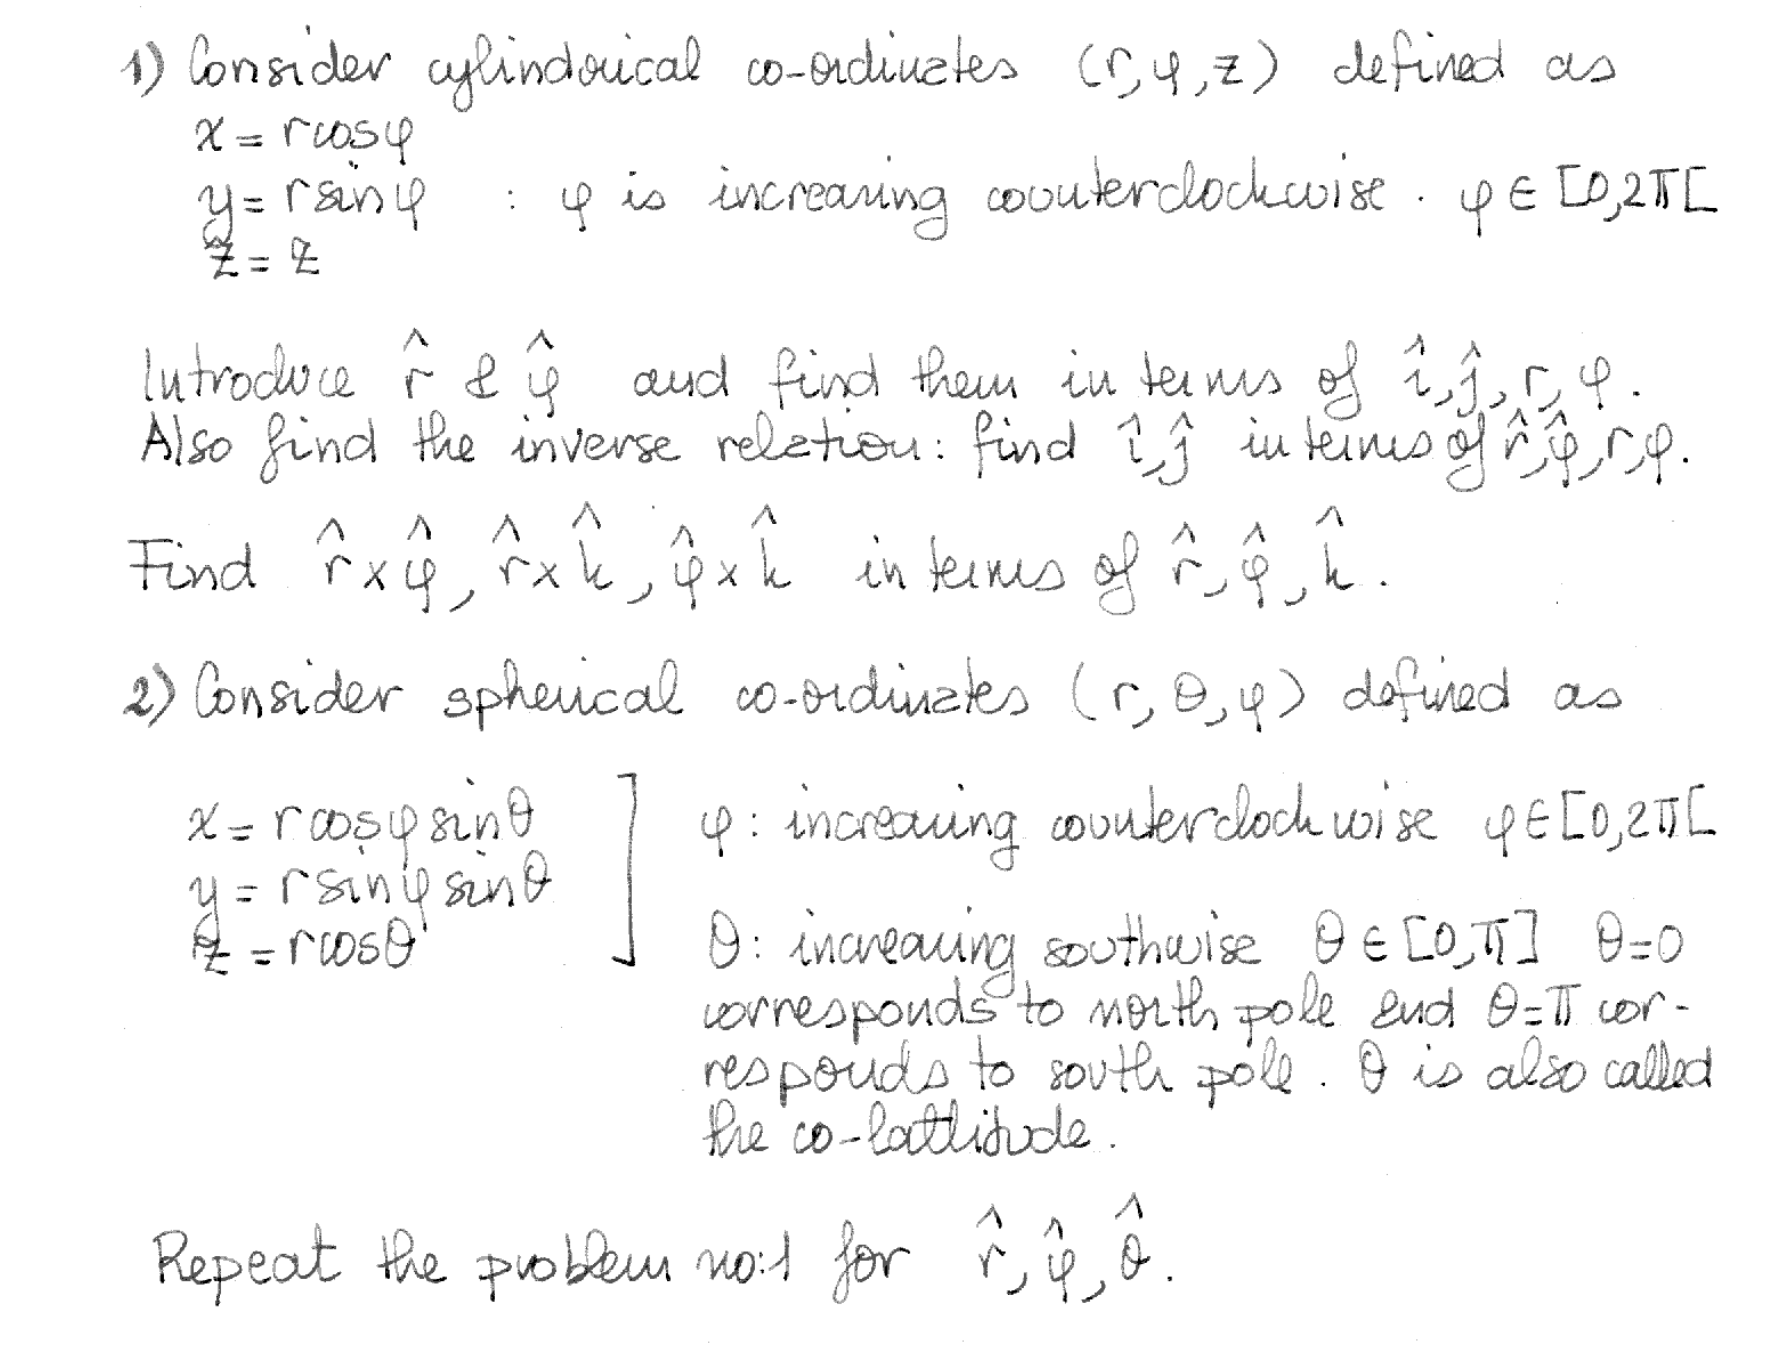 1) Consider cylindrical co-ordinates (r, φ, z) defined as
x = rcosφ
y = rsinφ : φ is increasing counterclockwise. φ ∈ [0,2π[
z = z
Introduce r̂ & φ̂ and find them in terms of î, ĵ, r, φ.
Also find the inverse relation: find î, ĵ in terms of r̂, φ̂, r, φ.
Find r̂ x φ̂, r̂ x k̂, φ̂ x k̂ in terms of r̂, φ̂, k̂.
2) Consider spherical co-ordinates (r, θ, φ) defined as
x = rcosφsinθ ] φ: increasing counterclockwise φ ∈ [0,2π[
y = rsinφsinθ
z = rcosθ θ: increasing southwise θ ∈ [0,π] θ=0
corresponds to north pole and θ=π cor-
responds to south pole. θ is also called
the co-lattitude.
Repeat the problem no:1 for r̂, φ̂, θ̂.